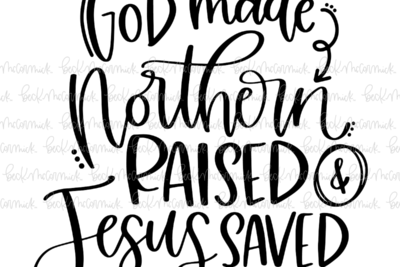 GOD made
Northern
RAISED &
Jesus SAVED